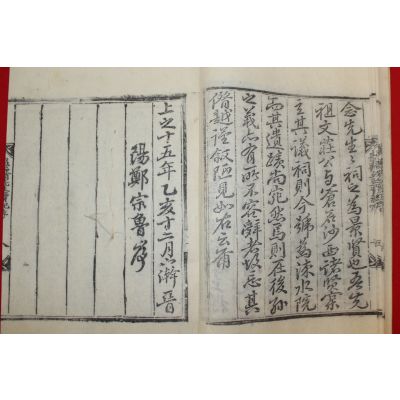 念先生之祠之爲景賢也吾先
祖文莊公与蒼石沙西諸賢寔
主其議祠則今號爲洙水院
而其遺蹟尚宛然焉則在後孫
之義亦有所不容辭者故忘其
僭越謹敍陋見如右云爾
上之十五年乙亥十二月下澣晉
陽鄭宗魯序